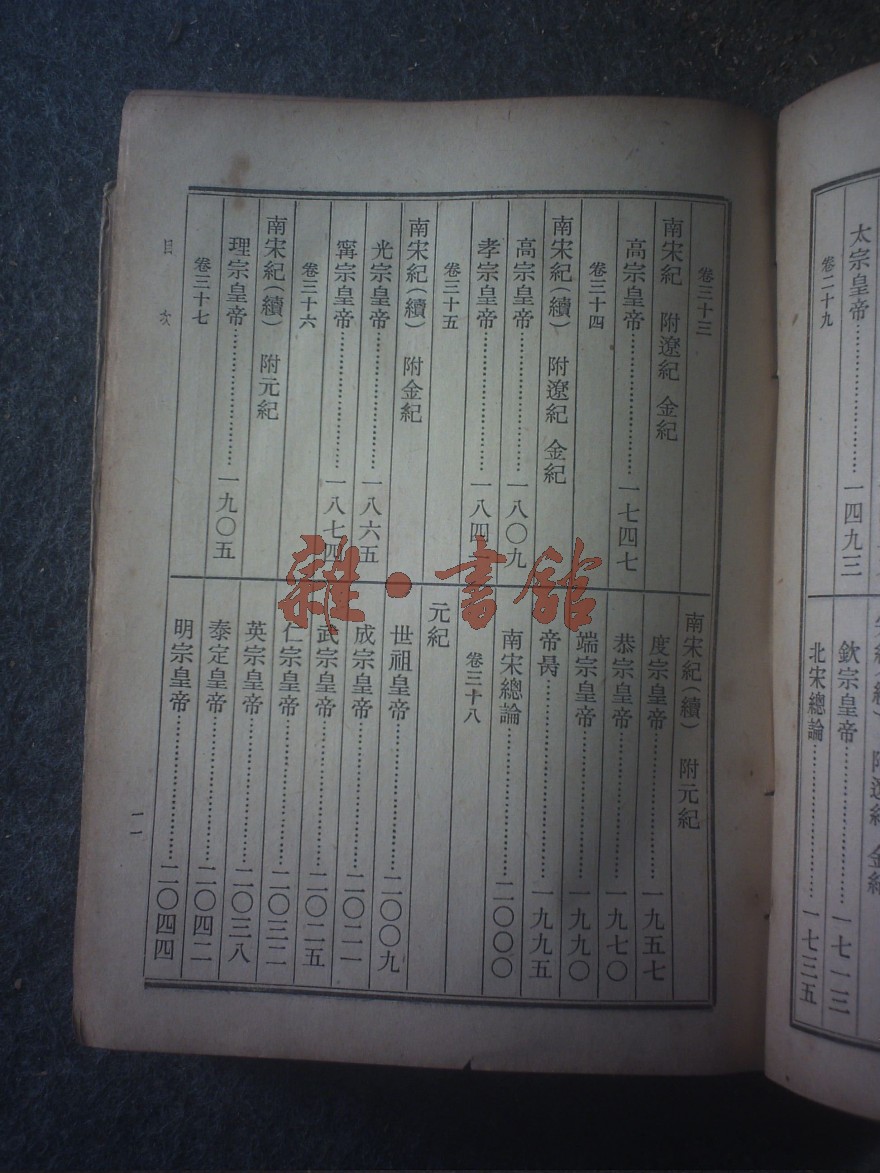 太宗皇帝……………一四九三
卷二十九
欽宗皇帝……………一七一三
北宋總論……………一七三五
卷三十三
南宋紀　附遼紀　金紀
高宗皇帝……………一七四七
卷三十四
南宋紀（續）　附遼紀　金紀
高宗皇帝……………一八〇九
孝宗皇帝……………一八四
卷三十五
南宋紀（續）　附金紀
光宗皇帝……………一八六五
寗宗皇帝……………一八七四
卷三十六
南宋紀（續）　附元紀
理宗皇帝……………一九〇五
卷三十七
南宋紀（續）　附元紀
度宗皇帝……………一九五七
恭宗皇帝……………一九七〇
端宗皇帝……………一九九〇
帝昺……………一九九五
南宋總論……………二〇〇〇
卷三十八
元紀
世祖皇帝……………二〇〇九
成宗皇帝……………二〇二一
武宗皇帝……………二〇二五
仁宗皇帝……………二〇三二
英宗皇帝……………二〇三八
泰定皇帝……………二〇四二
明宗皇帝……………二〇四四
目次
二
雜·書館